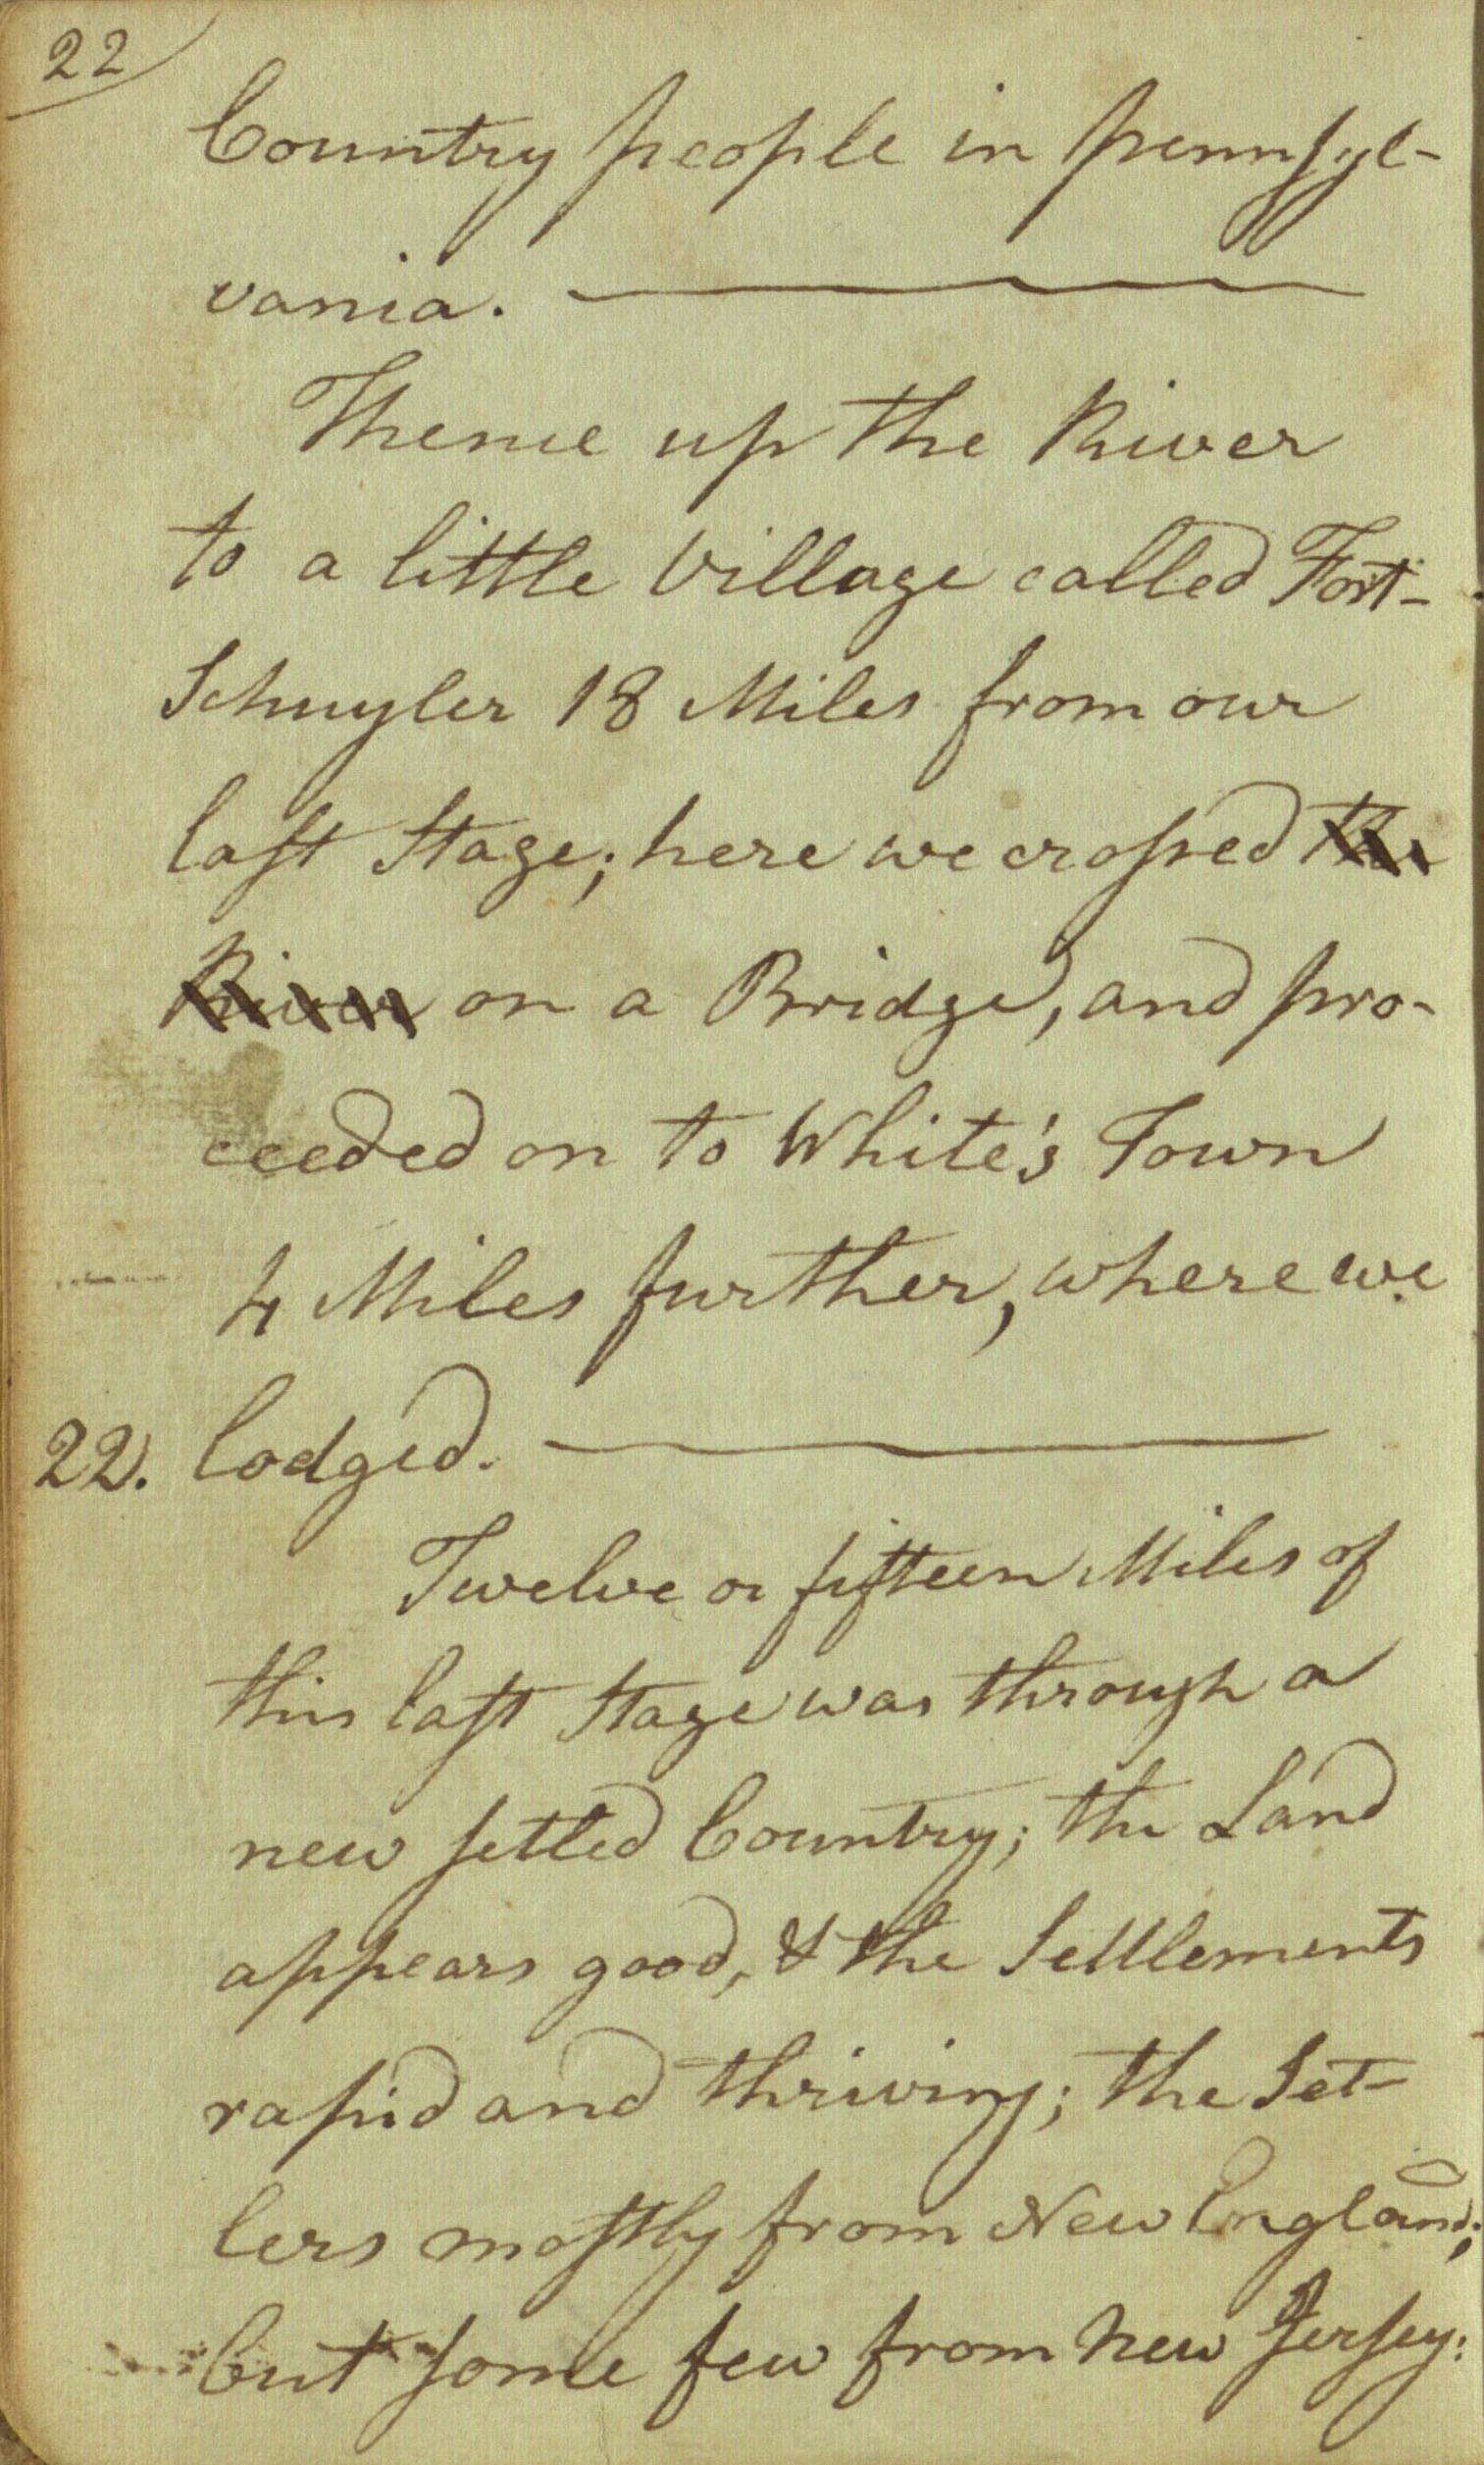 22
Country people in pennsyl-
vania.
Thence up the River
to a little Village called Fort-
Schuyler 18 Miles from our
last Stage; here we crossed the
River on a Bridge, and pro-
ceeded on to White's Town
4 Miles further, where we
22. lodged.
Twelve or fifteen Miles of
this last Stage was through a
new setled Country; the Land
appears good, & the Settlements
rapid and thriving; the Set-
lers mostly from New England;
but some few from new Jersey: